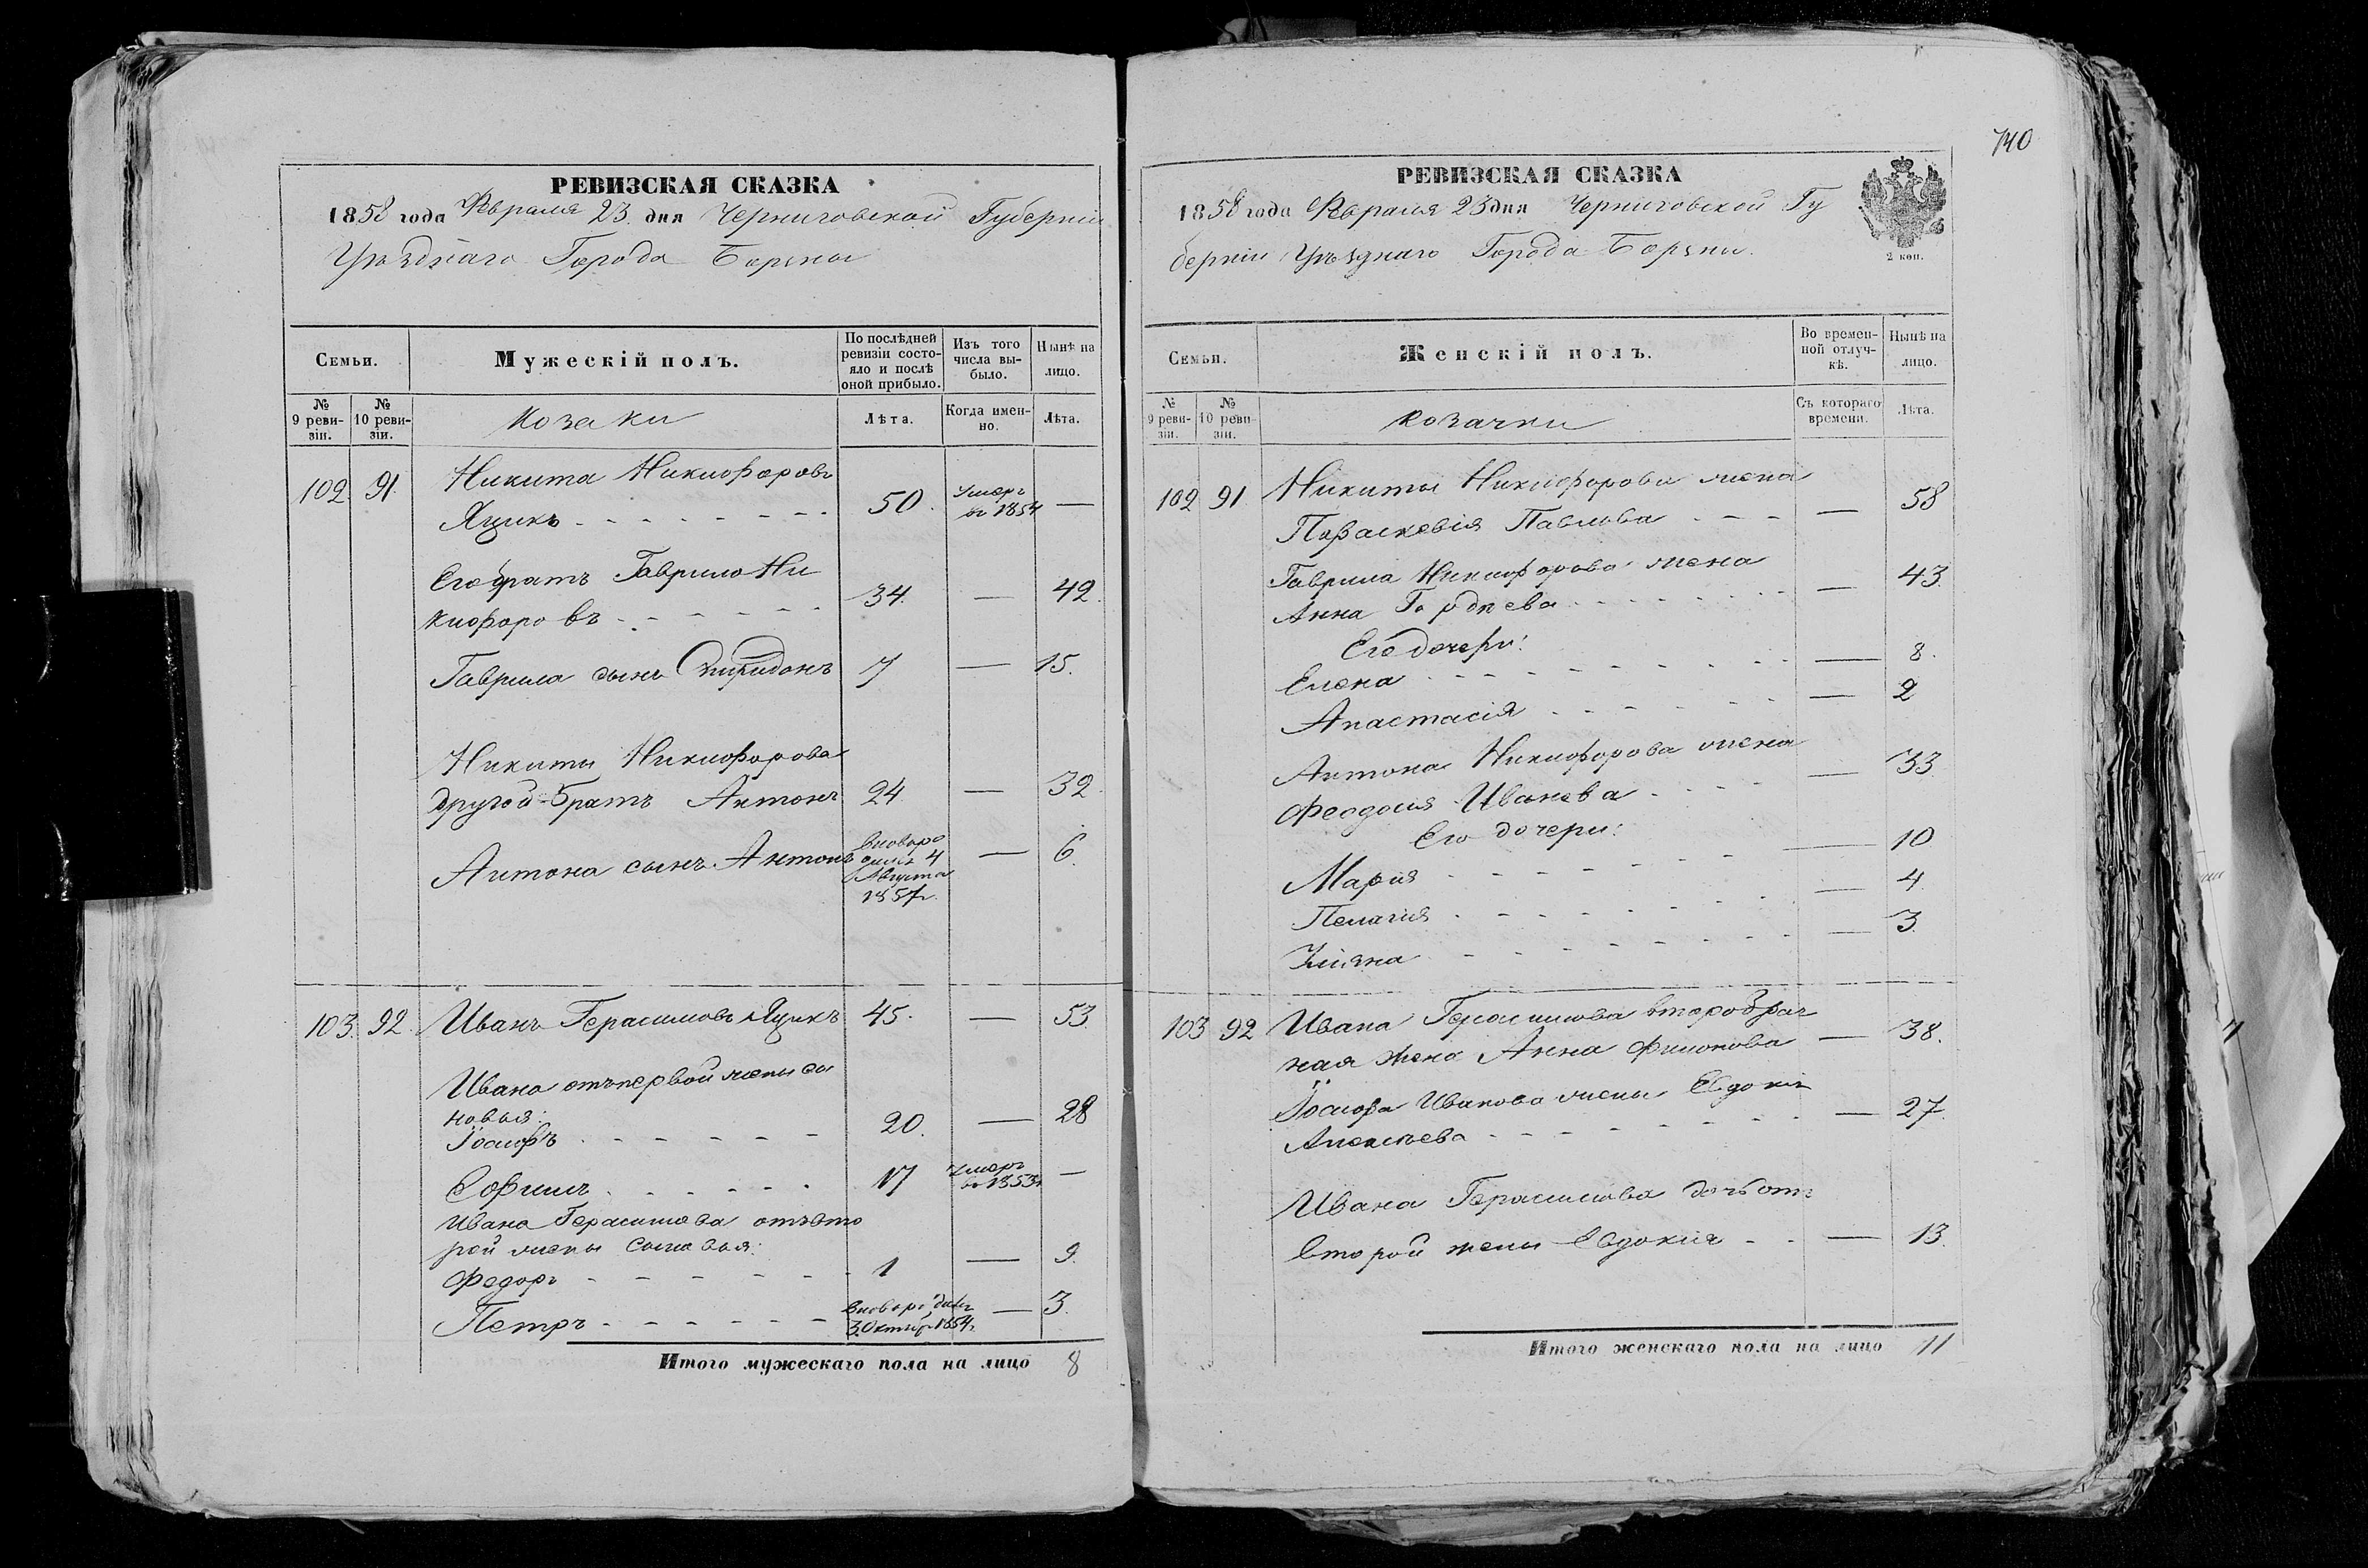 РЕВИЗСКАЯ СКАЗКА
1858 года Февраля 23 дня Черниговской Губерніи
Уѣзднаго Города Борзны
Семьи.
Мужескій полъ.
По послѣдней ревизіи состояло и послѣ оной прибыло.
Изъ того числа выбыло.
Нынѣ на лицо.
№ 9 ревизіи.
№ 10 ревизіи.
Козаки
Лѣта.
Когда именно.
Лѣта.
102 91. Никита Никифоровъ
Яцикъ 50. умеръ въ 1854 —
Его братъ Гаврило Ни
кифоровъ 34. — 42.
Гаврила сынъ Спиридонъ 7 — 15.
Никиты Никифорова
другой братъ Антонъ 24 — 32.
Антона сынъ Антонъ — 6.
Августа
1857г.
103. 92. Иванъ Герасимовъ Яцикъ 45. — 53
Ивана отъ первой жены сы
новья:
Іосифъ 20. — 28
17 умеръ въ 1853г. —
Ивана Герасимова отъ вто
рой жены сыновья:
Федоръ 1 — 9.
Петръ — 3.
3 Октяб. 1854г.
Итого мужескаго пола на лицо 8
140
РЕВИЗСКАЯ СКАЗКА
1858 года Февраля 23 дня Черниговской Гу
берніи Уѣзднаго Города Борзны.
2 коп.
Семьи.
Женскій полъ.
Во временной отлучкѣ.
Нынѣ на лицо.
№ 9 ревизіи.
№ 10 ревизіи.
Козачки
Съ котораго времени.
Лѣта.
102 91. Никиты Никифорова жена
Параскевія Павлова — 58
Гаврила Никифорова жена
Анна Гордѣева — 43.
Его дочери:
Елена — 8.
Анастасія — 2
Антона Никифорова жена
Феодосія Иванова — 33
Его дочери:
Марія — 10
Пелагія — 4.
Ульяна — 3
103 92 Ивана Герасимова второбрач
ная жена Анна Филонова — 38.
Іосифа Иванова жена Евдокія
Алексѣева — 27.
Ивана Герасимова дочь отъ
второй жены Евдокія — 13.
Итого женскаго пола на лицо 11